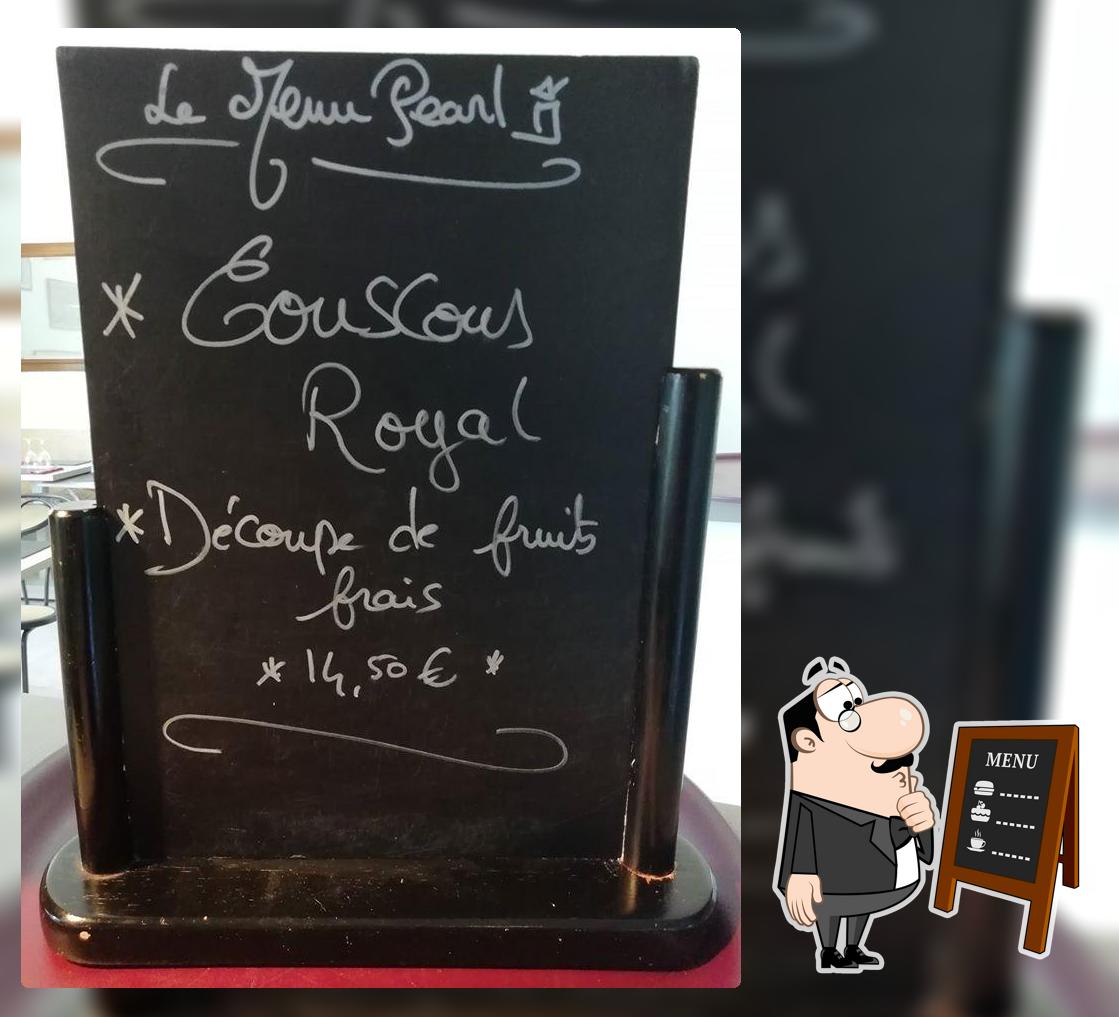 Le Menu Pearl
* Couscous
Royal
* Découpe de fruits
frais
* 14,50 € *
MENU